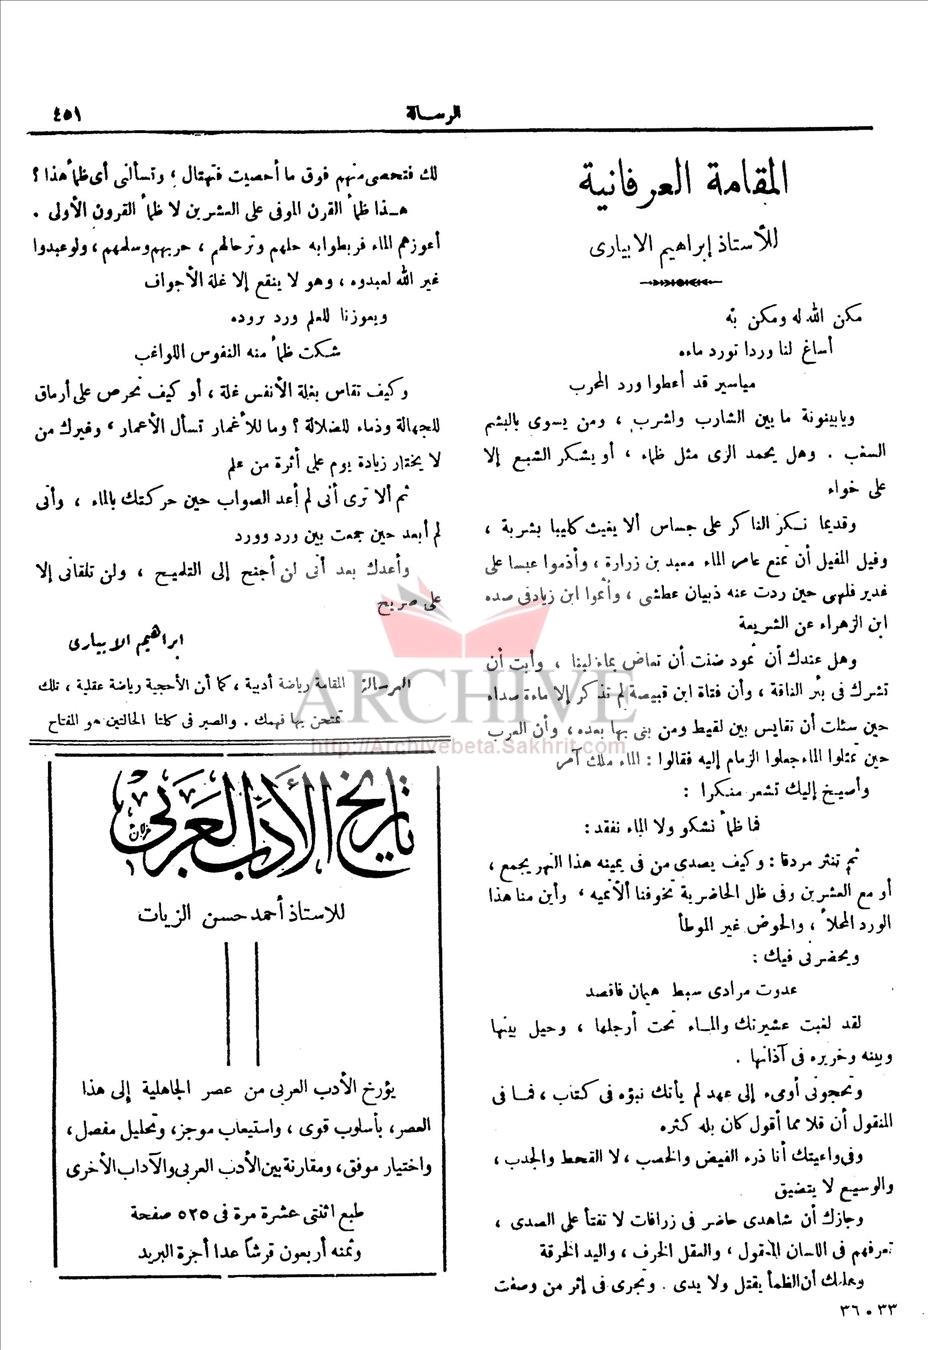 الرسالة
٤٥١
المقامة العرفانية
للأستاذ إبراهيم الابيارى
مكن الله له ومكن به
أساغ لنا وردا تورد ماءه
مياسير قد أعطوا ورد المحرب
ويابينونة ما بين الشارب والشرب، ومن يسوى بالبشم
السغب . وهل يحمد الرى مثل ظماء ، أو يشكر الشبع إلا
على خواء
وقديما نكر الناكر على جساس ألا يغيث كليبا بشربة ،
وفيل المفيل أن تمنع عامر الماء معبد بن زرارة ، وأذموا عبسا على
غدير قلهى حين ردت عنه ذبيان عطشى ، وأثموا ابن زياد فى صده
ابن الزهراء عن الشريعة
وهل عندك أن ثمود ضنت أن تعاض بماء لبنا ، وأبت أن
تشرك فى بئر الناقة ، وأن فتاة ابن قبيصة لم تذكر إلا ماءة صداء
حين سئلت أن تقايس بين لقيط ومن بنى بها بعده ، وأن العرب
حين تمثلوا الماء جعلوا الزمام إليه فقالوا : الماء ملك آمر
وأصيخ إليك تشعر منكرا :
فما ظمأ نشكو ولا الماء نفقد :
ثم تنثر مردفا : وكيف يصدى من فى يمينه هذا النهر يجمع ،
أو مع العشرين وفى ظل الحاضرة تخوفنا ألأتميه ، وأين منا هذا
الورد المحلأ ، والحوض غير الموطأ
ويحضرنى فيك :
عدوت مرادى سبط هيمان فاقصد
لقد لغبت عشيرتك والماء تحت أرجلها ، وحيل بينها
وبينه وخريره فى آذانها .
وتحجونى أومىء إلى عهد لم يأتك نبؤه فى كتاب ، فما فى
المنقول أن قلا مما أقول كان بله كثره
وفى واعيتك أنا ذرء الفيض والخصب ، لا القحط والجدب ،
والوسيع لا يتضيق
وجازك أن شاهدى حاضر فى زرافات لا تفتأ على الصدى ،
تعرفهم فى اللسان المعقول ، والعقل الخرف ، واليد الخرقة
وعلمك أن الظمأ يقتل ولا يدى . وتجرى فى إثر من وصفت
٣٣ • ٣٦
لك فتحصى منهم فوق ما أحصيت فتهتال ؛ وتسألنى أى ظمأ هذا ؟
هذا ظمأ القرن الموفى على العشرين لا ظمأ القرون الأولى .
أعوزهم الماء فربطوا به حلهم وترحالهم ، حربهم وسلمهم ، ولو عبدوا
غير الله لعبدوه ، وهو لا ينقع إلا غلة الأجواف
ويعوزنا للعلم ورد بروده
شكت ظمأ منه النفوس اللواغب
وكيف تقاس بغلة الأنفس غلة ، أو كيف تحرص على أرماق
للجهالة وذماء للضلالة ؟ وما للأغمار تسأل الأعمار ، وغيرك من
لا يختار زيادة يوم على أثرة من علم
ثم ألا ترى أنى لم أعد الصواب حين حركتك بالماء ، وأنى
لم أبعد حين جمعت بين ورد وورد
وأعدك بعد أنى لن أجنح إلى التلميح ، ولن تلقانى إلا
على صريح
ابراهيم الابيارى
الرسالة: المقامة رياضة أدبية ، كما أن الأحجية رياضة عقلية ، تلك
تمتحن بها فهمك . والصبر فى كلتا الحالتين هو المفتاح
تاريخ الأدب العربي
للاستاذ أحمد حسن الزيات
يؤرخ الأدب العربى من عصر الجاهلية إلى هذا
العصر، بأسلوب قوى ، واستيعاب موجز، وتحليل مفصل،
واختيار موفق، ومقارنة بين الأدب العربى والآداب الأخرى
طبع اثنتى عشرة مرة فى ٥٢٥ صفحة
وثمنه أربعون قرشاً عدا أجرة البريد
ARCHIVE
http://Archivebeta.Sakhrit.com